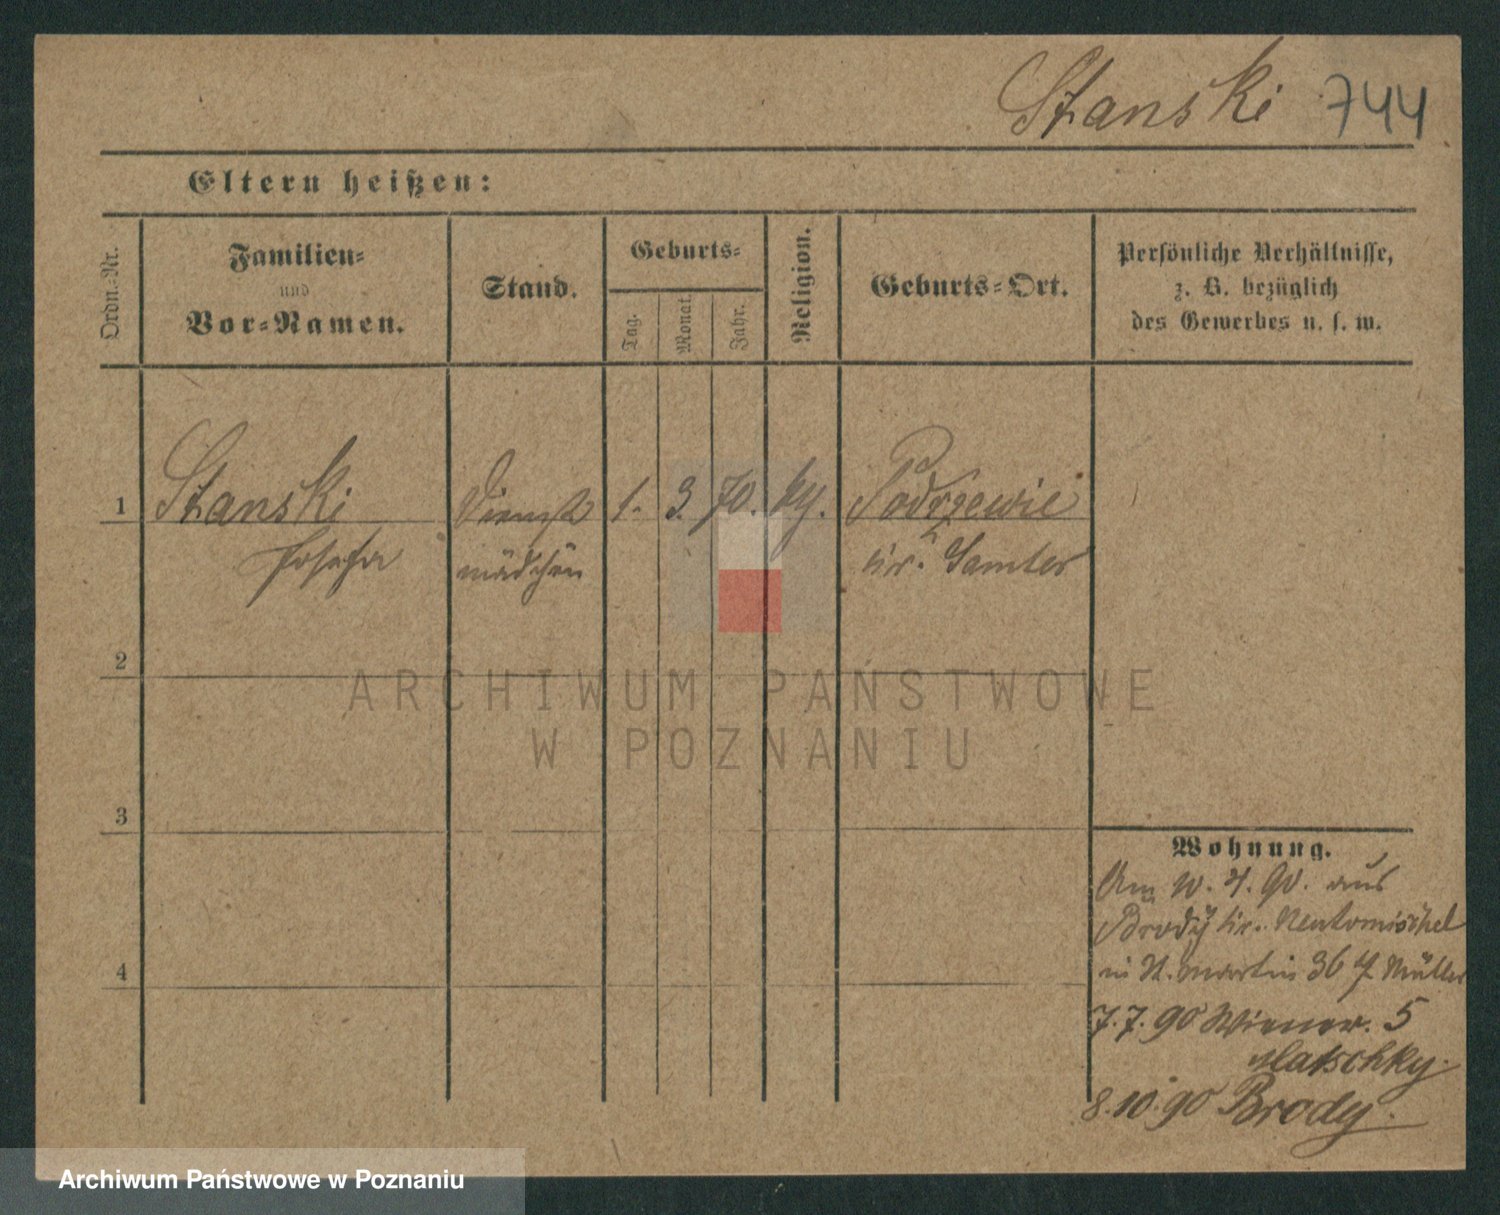 Stanski 744
Eltern heißen:
Ordn.-Nr.
Familien-
und
Vor-Namen.
Stand.
Geburts-
Tag.
Monat.
Jahr.
Religion.
Geburts-Ort.
Persönliche Verhältnisse,
z. B. bezüglich
des Gewerbes u. s. w.
1 Stanski Dienst 1. 3. 70. ky. Podrzewie
Josefa mädchen Kr. Samter
2
3
4
Wohnung.
Am 10. 4. 90. aus
Brody Kr. Neutomischel
in St. Martin 36 Müller
7.7.90 Wiener. 5
Matschky.
8.10.90 Brody.
ARCHIWUM PAŃSTWOWE
W POZNANIU
Archiwum Państwowe w Poznaniu